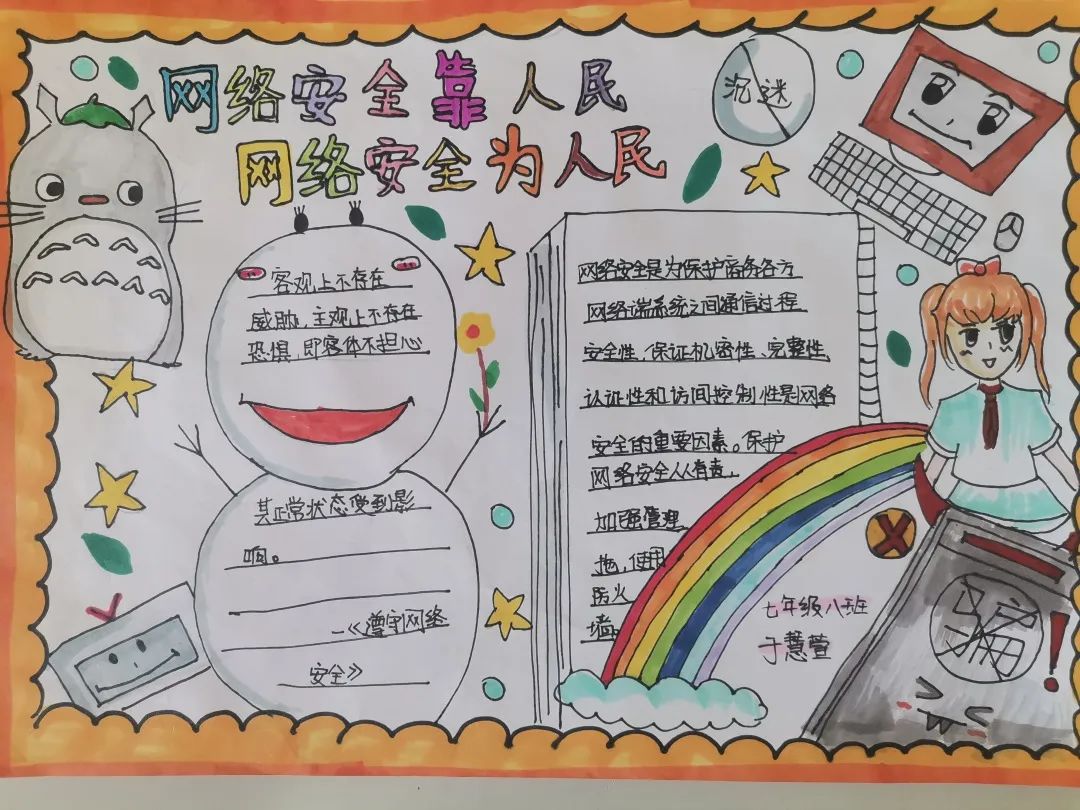 网络安全靠人民
网络安全为人民
沉迷
客观上不存在
威胁，主观上不存在
恐惧，即客体不担心
其正常状态受到影
响。
—《遵守网络
安全》
网络安全是为保护商务各方
网络端系统之间通信过程
安全性，保证机密性、完整性，
认证性和访问控制性是网络
安全的重要因素。保护
网络安全从有责，
加强管理
施，使用
防火
墙。
七年级八班
于慧萱